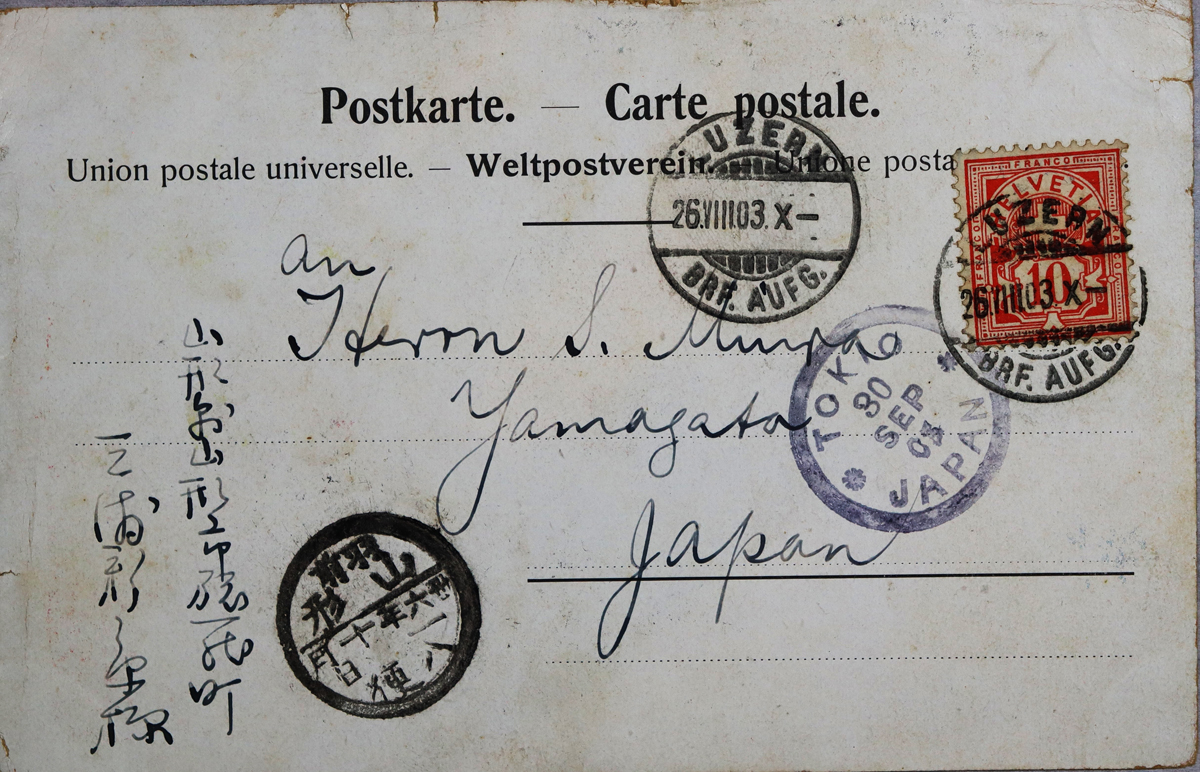 Postkarte. — Carte postale.
Union postale universelle. — Weltpostverein. — Unione posta
LUZERN
26.VIII.03. X—
BRF. AUFG.
FRANCO
HELVETIA
10
LUZERN
26.VIII.03 X—
BRF. AUFG.
An
Herrn S. Miura
Yamagata
Japan
TOKIO
30
SEP
03
JAPAN
山形縣山形市
三浦 様
羽前
山形
六年十月一日
八便